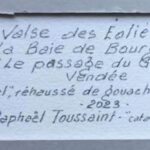 Valse des Éolie
la Baie de Bour
Le passage du G
Vendée
el, réhaussé de gouach
- 2023 -
Raphaël Toussaint - cata